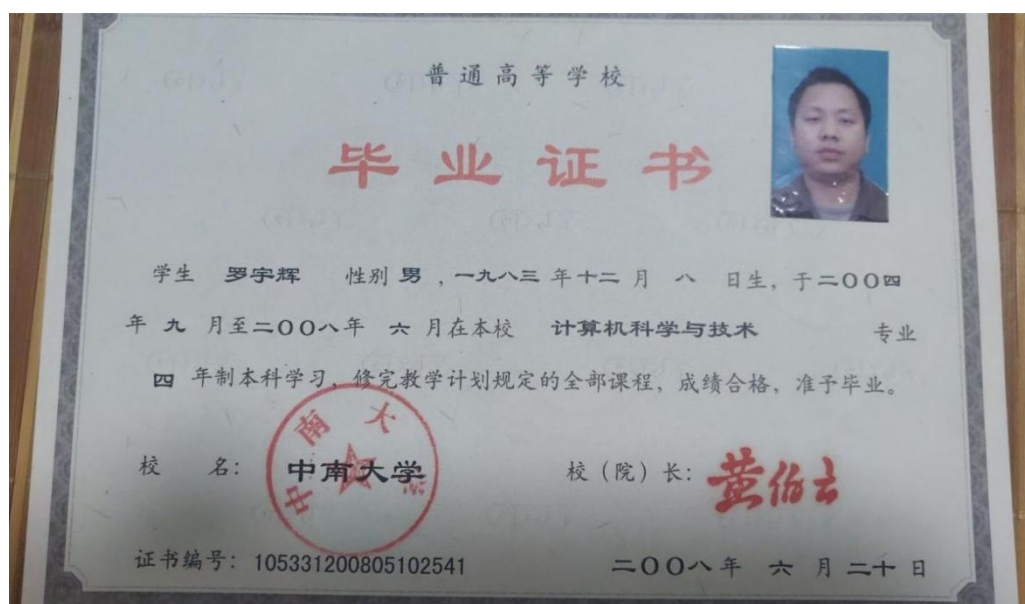 普通高等学校
毕业证书
学生 罗宇辉 性别 男 ，一九八三 年十二 月 八 日生，于二〇〇四
年 九 月至二〇〇八年 六 月在本校 计算机科学与技术 专业
四 年制本科学习，修完教学计划规定的全部课程，成绩合格，准予毕业。
校 名： 中南大学 校（院）长：黄伯云
中南大学
证书编号：105331200805102541 二〇〇八年 六 月 二十 日